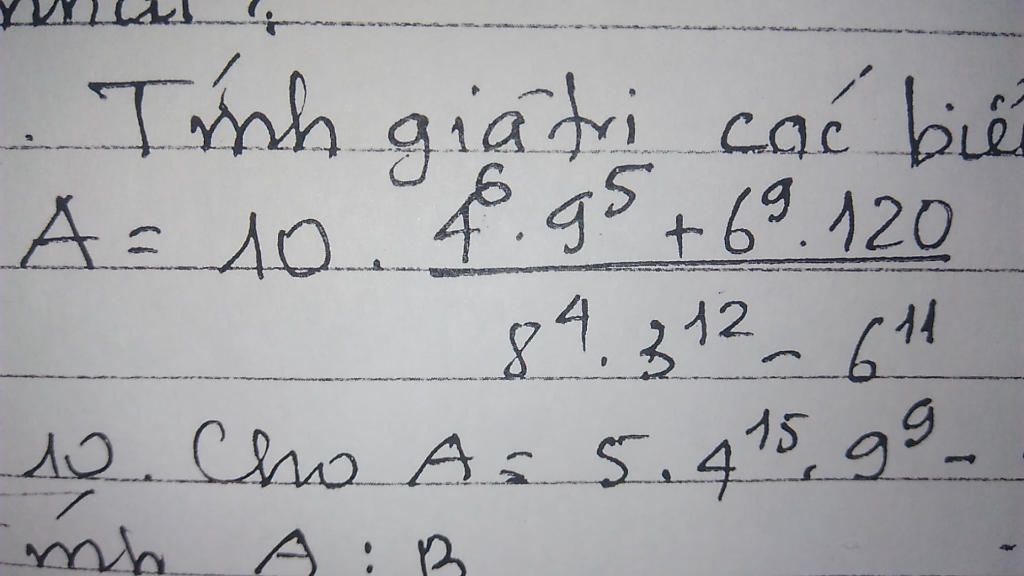 . Tính giá trị các biể
A = 10 . \frac{4^6 . 9^5 + 6^9 . 120}{8^4 . 3^{12} - 6^{11}}
10. Cho A = 5 . 4^{15} . 9^9 -
ính A : B